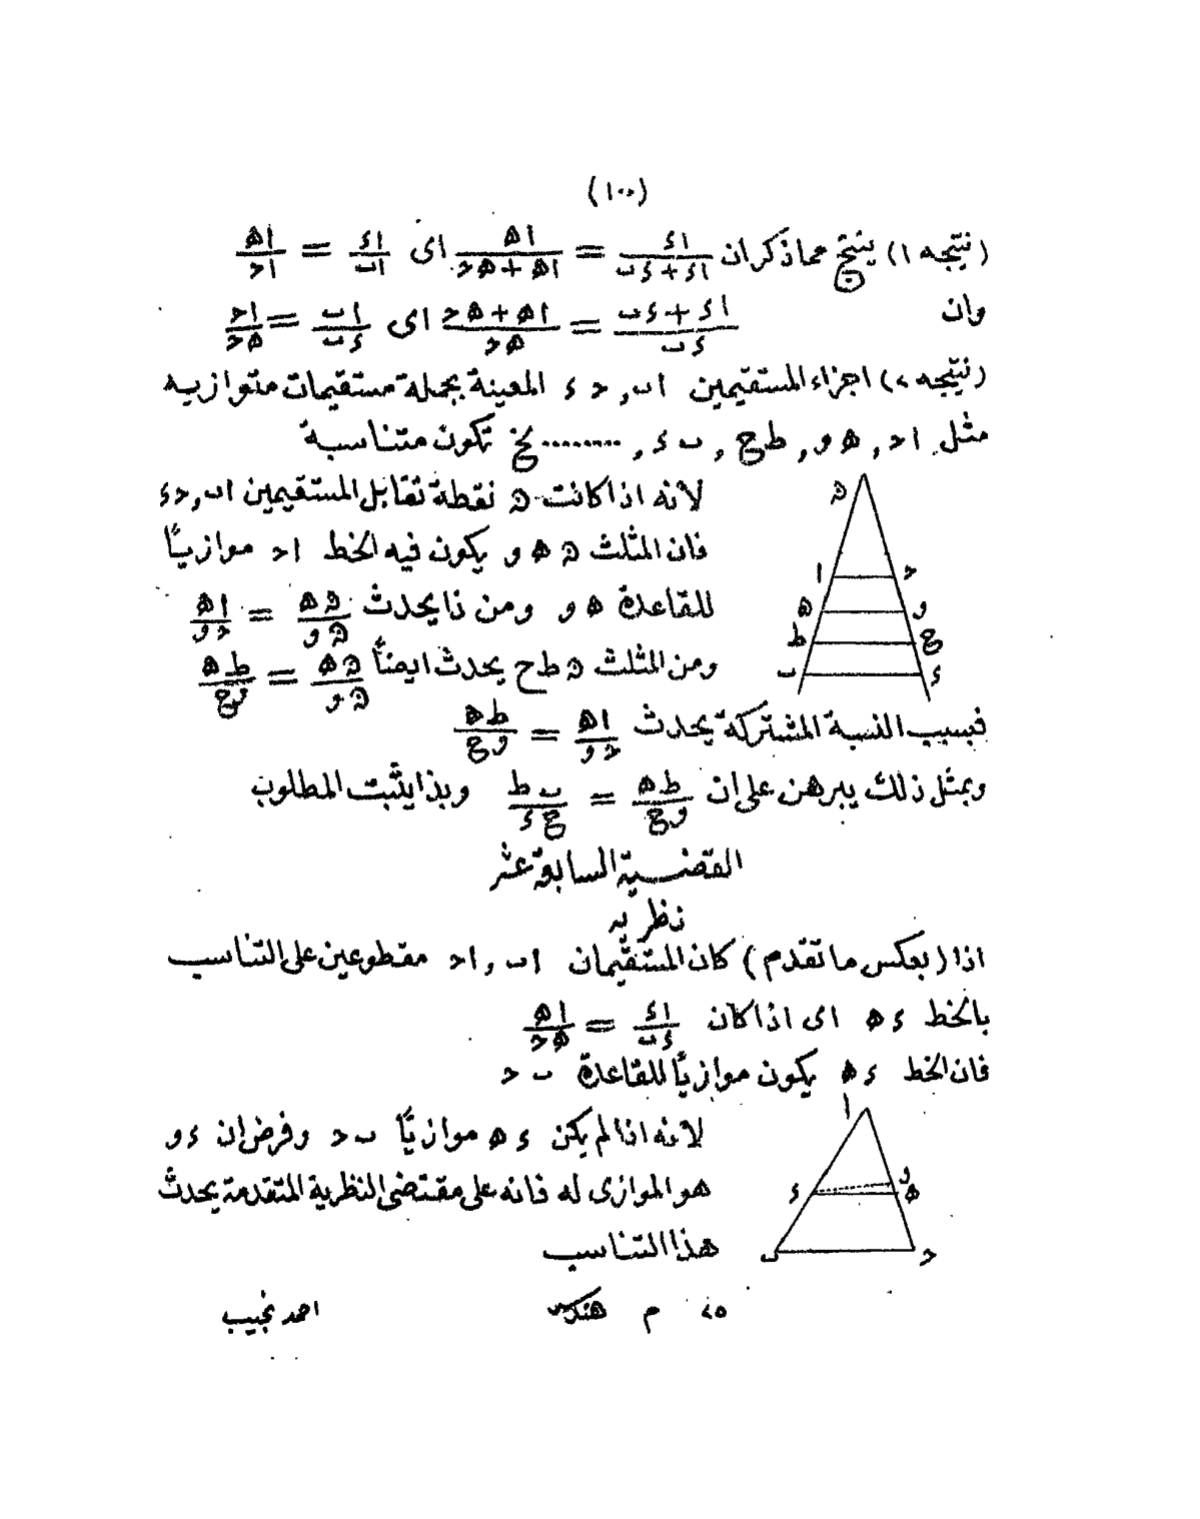 (١٠٠)
(نتيجه ١) ينتج مما ذكر ان اء/(اء + ءب) = اه/(اه + هح) اى اء/اب = اه/اح
وان (اء + ءب)/ءب = (اه + هح)/هح اى اب/ءب = اح/هح
(نتيجه ٢) اجزاء المستقيمين اب , ح ء المعينة بجملة مستقيمات متوازيه
مثل اح , ه و , ط ج , ب ء , ......... لخ تكون متناسبة
لانه اذا كانت ﻫ نقطة تقابل المستقيمين اب , ح ء
فان المثلث ﻫ ه و يكون فيه الخط اح موازيًا
للقاعدة ه و ومن ذا يحدث ﻫه/ﻫو = اه/حو
ومن المثلث ﻫ ط ح يحدث ايضًا ﻫه/ﻫو = طه/وج
فبسبب النسبة المشتركة يحدث اه/حو = طه/وج
وبمثل ذلك يبرهن على ان طه/وج = ب ط/ج ء وبذا يثبت المطلوب
ﻫ
ا ح
ه و
ط ج
ب ء
القضية السابعة عشر
نظريه
اذا (بعكس ما تقدم) كان المستقيمان اب , اح مقطوعين على التناسب
بالخط ء ه اى اذا كان اء/ءب = اه/هح
فان الخط ء ه يكون موازيًا للقاعدة ب ح
لانه اذا لم يكن ء ه موازيًا ب ح وفرض ان ء و
هو الموازى له فانه على مقتضى النظرية المتقدمة يحدث
هذا التناسب
ا
و
ء ه
ب ح
٢٥ م هندسه احمد نجيب